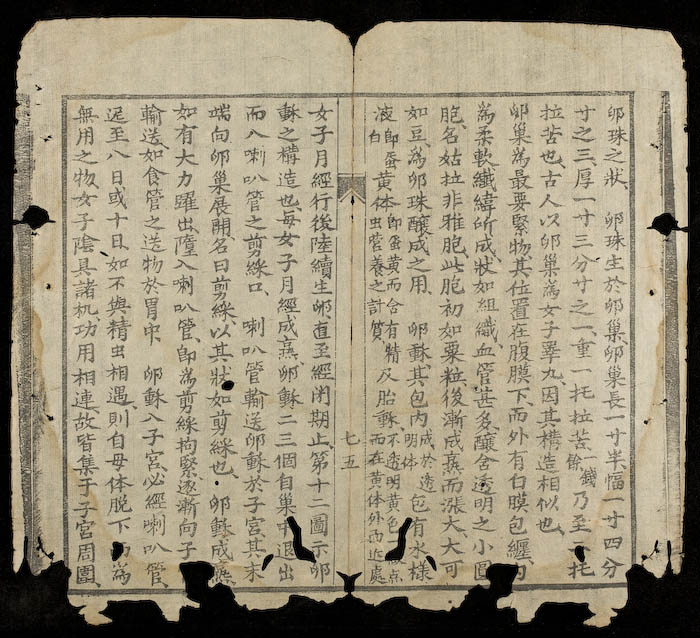 卵珠之狀　卵珠生於卵巢、卵巢長一寸半、幅一寸四分
寸之三、厚一寸三分寸之一、重一托拉苦一錢餘乃至二托
拉苦也、古人以卵巢為女子睪丸、因其構造相似也、
卵巢為最要緊物、其位置在腹膜下、而外有白膜包纏、內
為柔軟纖緯所成、狀如組織、血管甚多、釀含透明之小圓
胞、名姑拉非雅胞、此胞初如粟粒、後漸成熹而漲大、大可
如豆、為卵珠釀成之用、　卵穌其包內成於透明体包有水樣
液即蛋白黃体即蛋黃而含有精虫營養之計算及胎穌、不透明黃色点而在黃体外面近處
七五
女子月經行後、陸續生卵、直至經閉期止、第十二圖示卵
穌之構造也、每女子月經成熹、卵穌二三個自巢中退出
而入喇叭管之剪綵口、　喇叭管輸送卵穌於子宮、其末
端向卵巢展開、名曰剪綵、以其狀如剪綵也、卵穌成熹
如有大力躍出、墮入喇叭管、即為剪綵拘緊、逐漸向子
輸送、如食管之送物於胃中、卵穌入子宮、必經喇叭管、
遲至八日或十日、如不與精虫相遇、則自母体脫下為
無用之物、女子陰具諸机、功用相連、故皆集于子宮周圍、